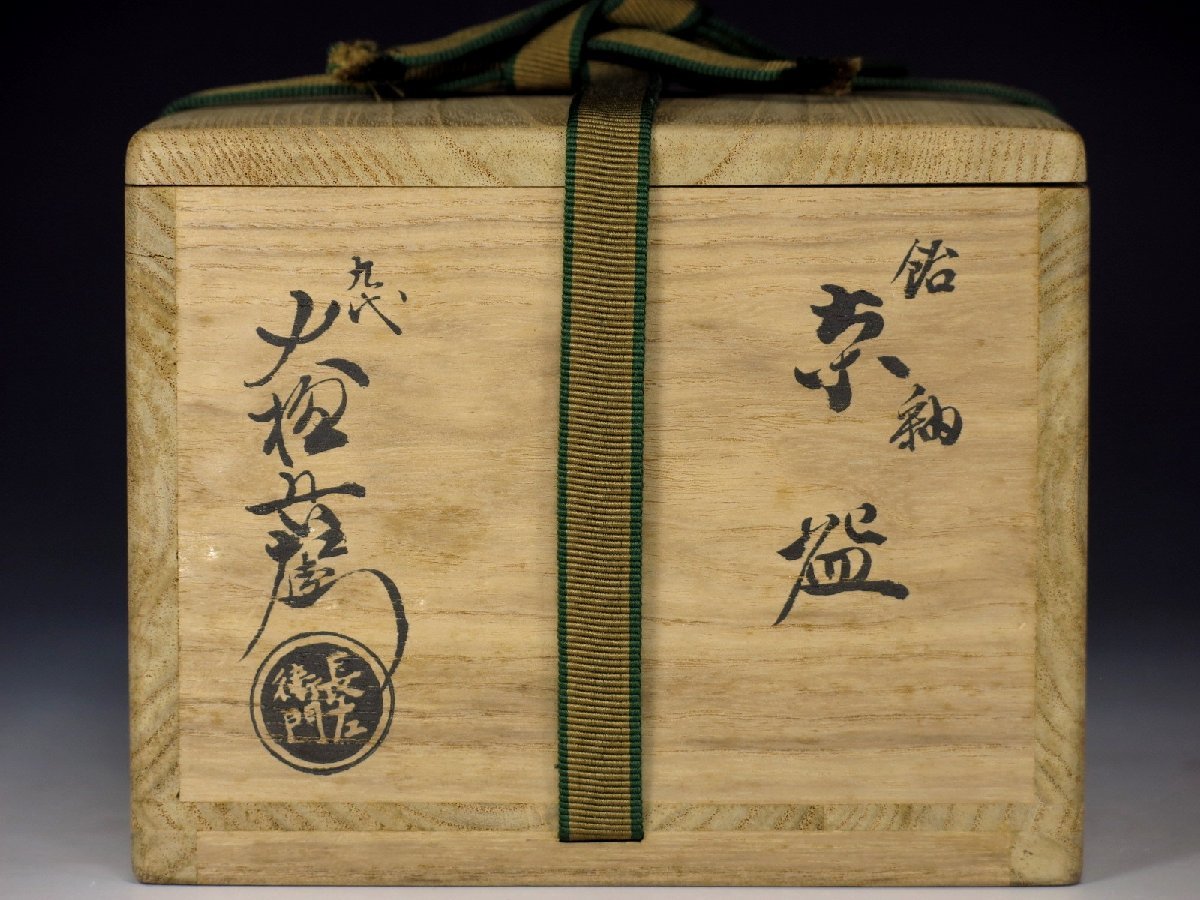 飴釉
茶盌
九代
大樋長左衛門
長左
衛門